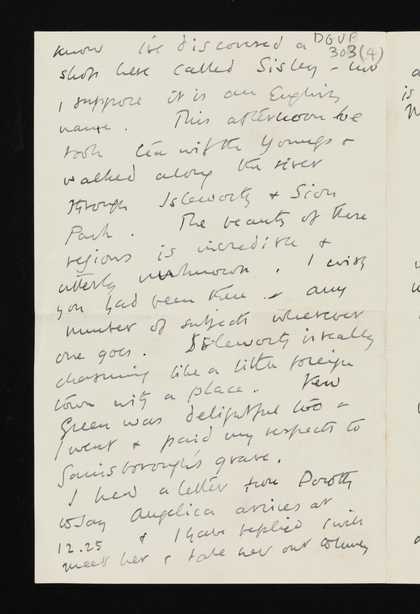 know I've discovered a
DGVP
303(4)
shop here called Sisley – but
I suppose it is an English
name. This afternoon we
took tea with the Youngs &
walked along the river
through Isleworth & Sion
Park. The beauty of these
regions is incredible &
utterly unknown. I wish
you had been there – any
number of subjects wherever
one goes. Isleworth is really
charming like a little foreign
town with a place. Kew
Green was delightful too –
I went & paid my respects to
Gainsborough's grave.
I had a letter from Dorothy
today Angelica arrives at
12.25 & I have replied I will
meet her & take her out to lunch